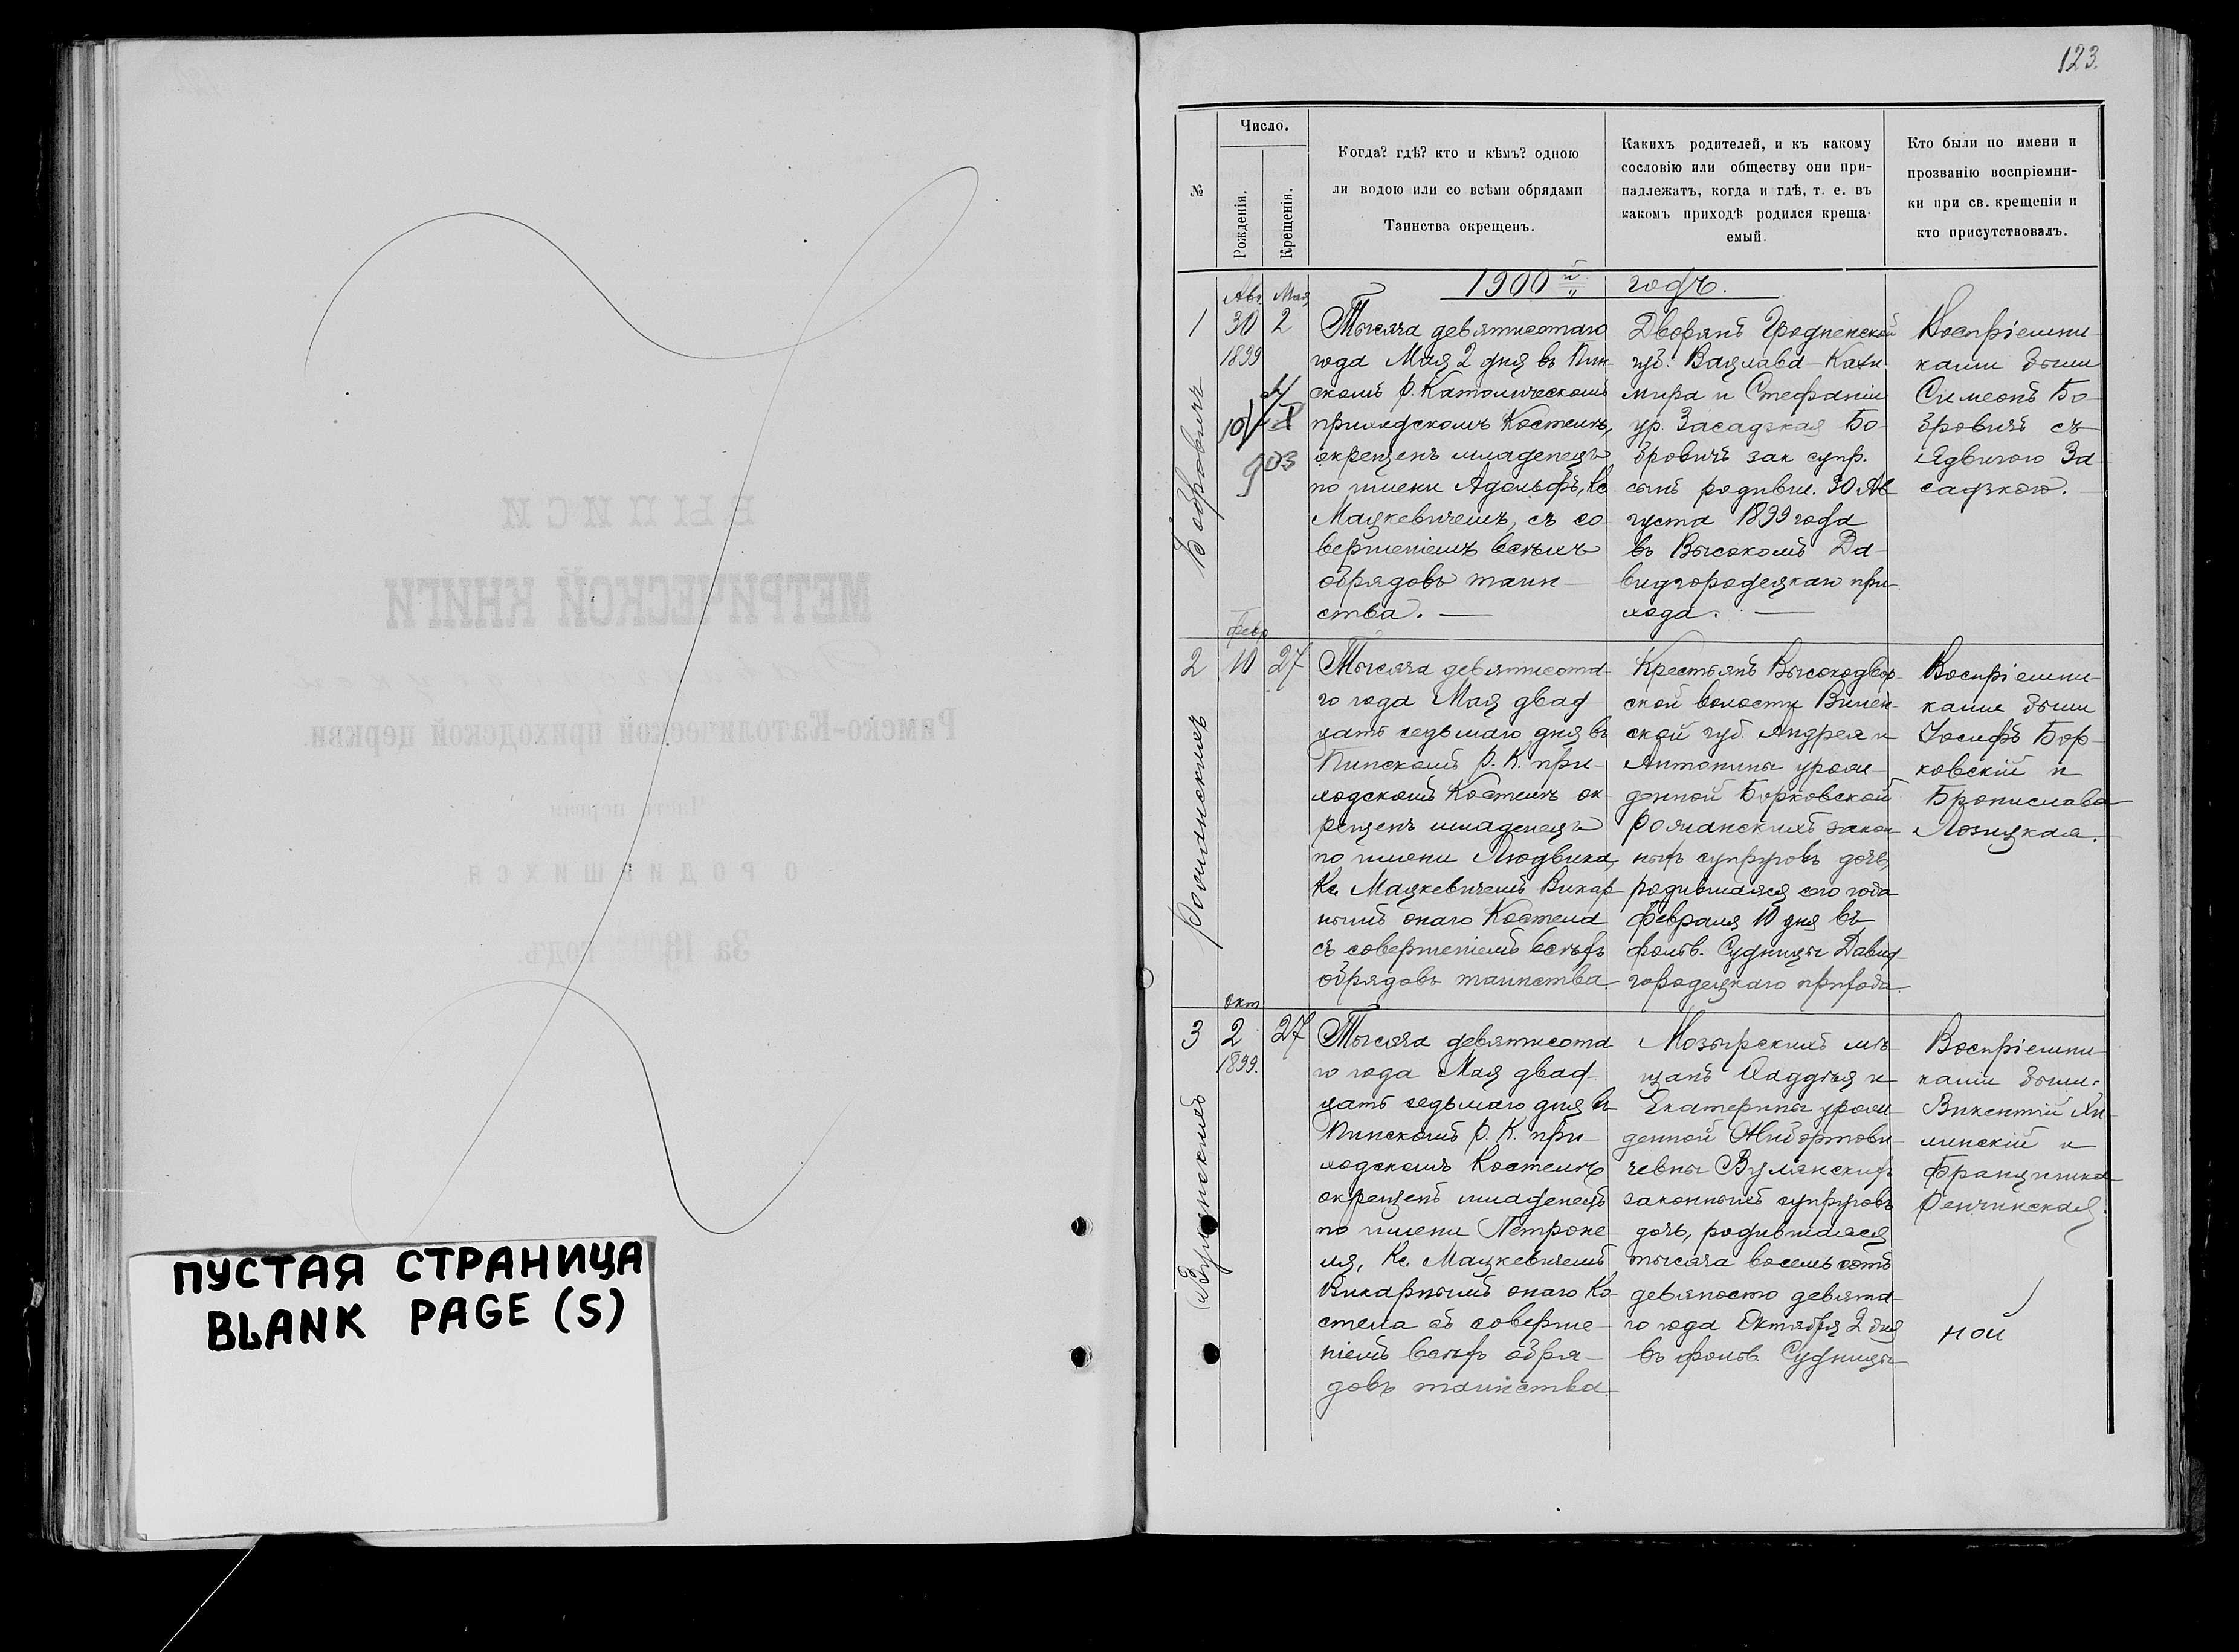 ПУСТАЯ СТРАНИЦА
BLANK PAGE (S)
123.
№
Число.
Рожденія.
Крещенія.
Когда? гдѣ? кто и кѣмъ? одною
ли водою или со всѣми обрядами
Таинства окрещенъ.
Какихъ родителей, и къ какому
сословію или обществу они при-
надлежатъ, когда и гдѣ, т. е. въ
какомъ приходѣ родился креща-
емый.
Кто были по имени и
прозванію воспріемни-
ки при св. крещеніи и
кто присутствовалъ.
1900й годъ.
1
Авг.
30
1899
Мая
2
903
Бобровичъ
Тысяча девятисотаго
года Мая 2 дня въ Пин-
скомъ Р. Католическомъ
приходскомъ Костелѣ,
окрещенъ младенецъ
по имени Адольфъ, Кс.
Мацкевичемъ, съ со-
вершеніемъ всѣхъ
обрядовъ таин-
ства. —
Дворянъ Гродненской
губ. Вацлава-Кази-
мира и Стефаніи
ур. Засадзкая Бо-
бровичъ зак. супр.
сынъ родивш. 30 Ав-
густа 1899 года
въ Высокомъ Да-
видгородецкаго при-
хода. —
Воспріемни-
ками были
Симеонъ Бо-
бровичъ съ
Ядвигою За-
садзкою. —
2
Февр
10
27
Романскихъ
Тысяча девятисота-
го года Мая двад-
цать седьмаго дня въ
Пинскомъ Р. К. при-
ходскомъ Костелѣ ок-
рещенъ младенецъ
по имени Людвика,
Кс. Мацкевичемъ Викар-
нымъ онаго Костела
съ совершеніемъ всѣхъ
обрядовъ таинства.
Крестьянъ Высокодвор-
ской волости Вилен-
ской губ. Андрея и
Антонины урож-
денной Борковской
Романскихъ закон-
ныхъ супруговъ дочь,
родившаяся сего года
Февраля 10 дня въ
фольв. Судницы Давид-
городецкаго прихода.
Воспріемни-
ками были
Іосифъ Бор-
ковскій и
Брониславa
Лозицкая.
3
Окт
2
1899.
27
Тысяча девятисота-
го года Мая двад-
цать седьмаго дня въ
Пинскомъ Р. К. при-
ходскомъ Костелѣ
окрещенъ младенецъ
по имени Петроне-
ля, Кс. Мацкевичемъ
Викарнымъ онаго Ко-
стела съ соверше-
ніемъ всѣхъ обря-
довъ таинства.
Мозырскихъ мѣ-
щанъ Фаддѣя и
Екатерины урож-
денной
законныхъ супруговъ
дочь, родившаяся
тысяча восемьсотъ
девяносто девята-
го года Октября 2 дня
въ фольв. Судницы
Воспріемни-
ками были
Викентій
и
Францишка
ной